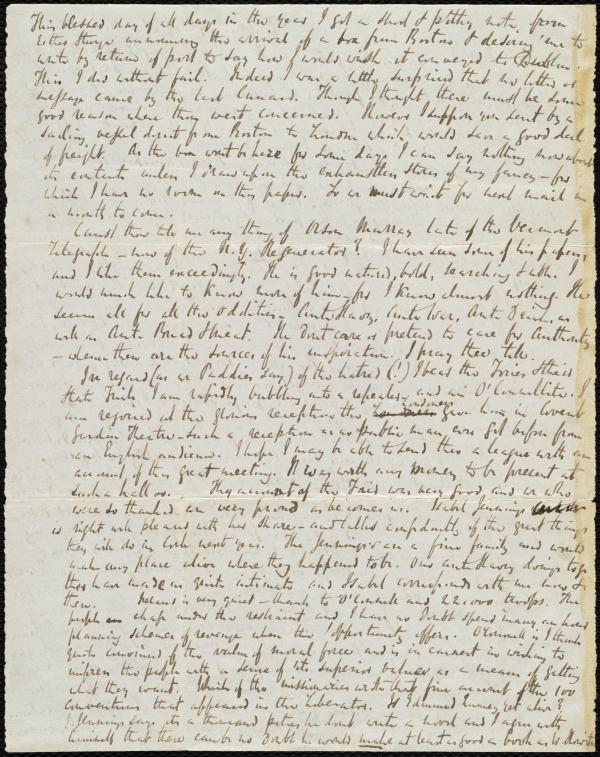 This blessed day of all days in the year I got a short & pithy note from
Esther Sturge announcing the arrival of a box from Boston & desiring me to
write by return of post to say how I would wish it conveyed to Dublin.
This I did without fail. Indeed I was a little surprised that no letter or
message came by the last Cunard. Though I thought there must be some
good reason where they went concerned. However I suppose you sent by a
sailing vessel direct from Boston to London which would save a good deal
of freight. As the box wont be here for some days I can say nothing more about
its contents unless I draw upon the exhaustless stores of my fancy - for
which I have no room on this paper. So we must wait for next mail in
a month to come.
Canst thou tell me any thing of Orson Murray late of the Vermont
Telegraph - now of the N.Y. Regenerator? I have seen some of his papers
and I like them exceedingly. He is good natured, bold, searching & able. I
would much like to know more of him - for I know almost nothing. He
seems all for all the oddities - Anti Slavery, Anti War, Anti Drink, as
well as Anti Bread & Meat. He dont care or pretend to care for Authority
- whence then are the sources of his inspiration. I pray thee tell.
In regard (as we Paddies say) of the hatred (!) I bear the Tories & their
that I am rapidly bubbling into a repealer and an O'Connellite. I
am rejoiced at the glorious reception the Londoners gave him in Covent
Garden Theatre - such a reception as no public man ever got before from
an English audience. I hope I may be able to send thee a league with an
account of this great meeting. It was worth any money to be present at
such a halloo. Thy account of the Fair was very good and we who
were so thanked are very proud as becomes us. Isabel Jennings
is right well pleased with her share - and talks confidently of the great things
they will do in Cork next year. The Jennings's are a fine family and would
make any place alive where they happened to be. Our anti slavery doings
have made us quite intimate and Isabel corresponds with me now &
then. Ireland is very quiet - thanks to O'Connell and 22,000 troops. The
people chafe under the restraint and I have no doubt spend many an hour
planning schemes of revenge when the opportunity offers. O'Connell is I think
quite convinced of the value of moral force and is in earnest in wishing to
impress the people with a sense of its superior value as a means of getting
what they want. Which of the missionaries wrote that fine account of the 100
conventions that appeared in the Liberator. Is Edmund Quincy yet alive?
J. Jennings says its a thousand pities he dont write a novel and I agree with
himself that there can be no doubt he would make at least as good a book as W. Howitt